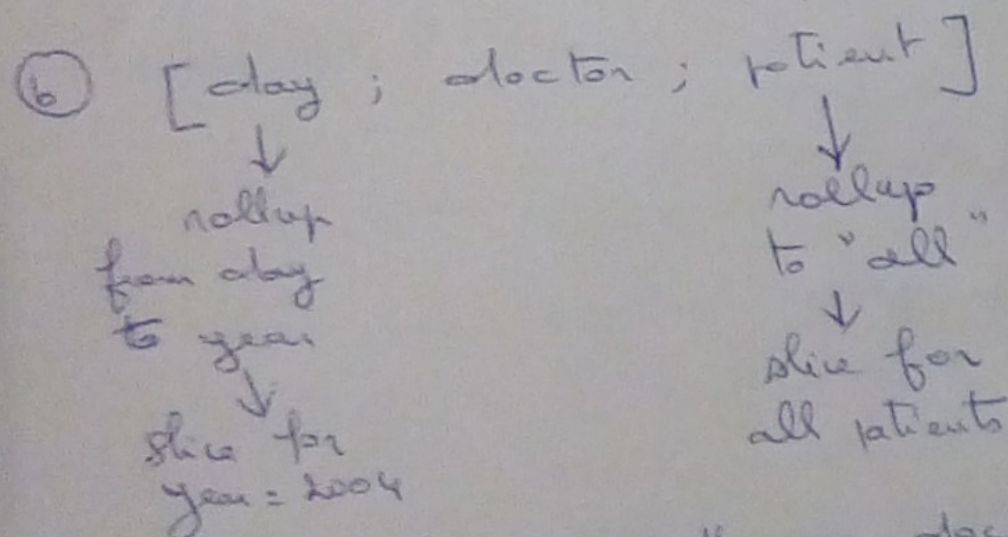 b [day ; doctor ; patient]
rollup
from day
to year
slice for
year = 2004
rollup
to "all"
slice for
all patients